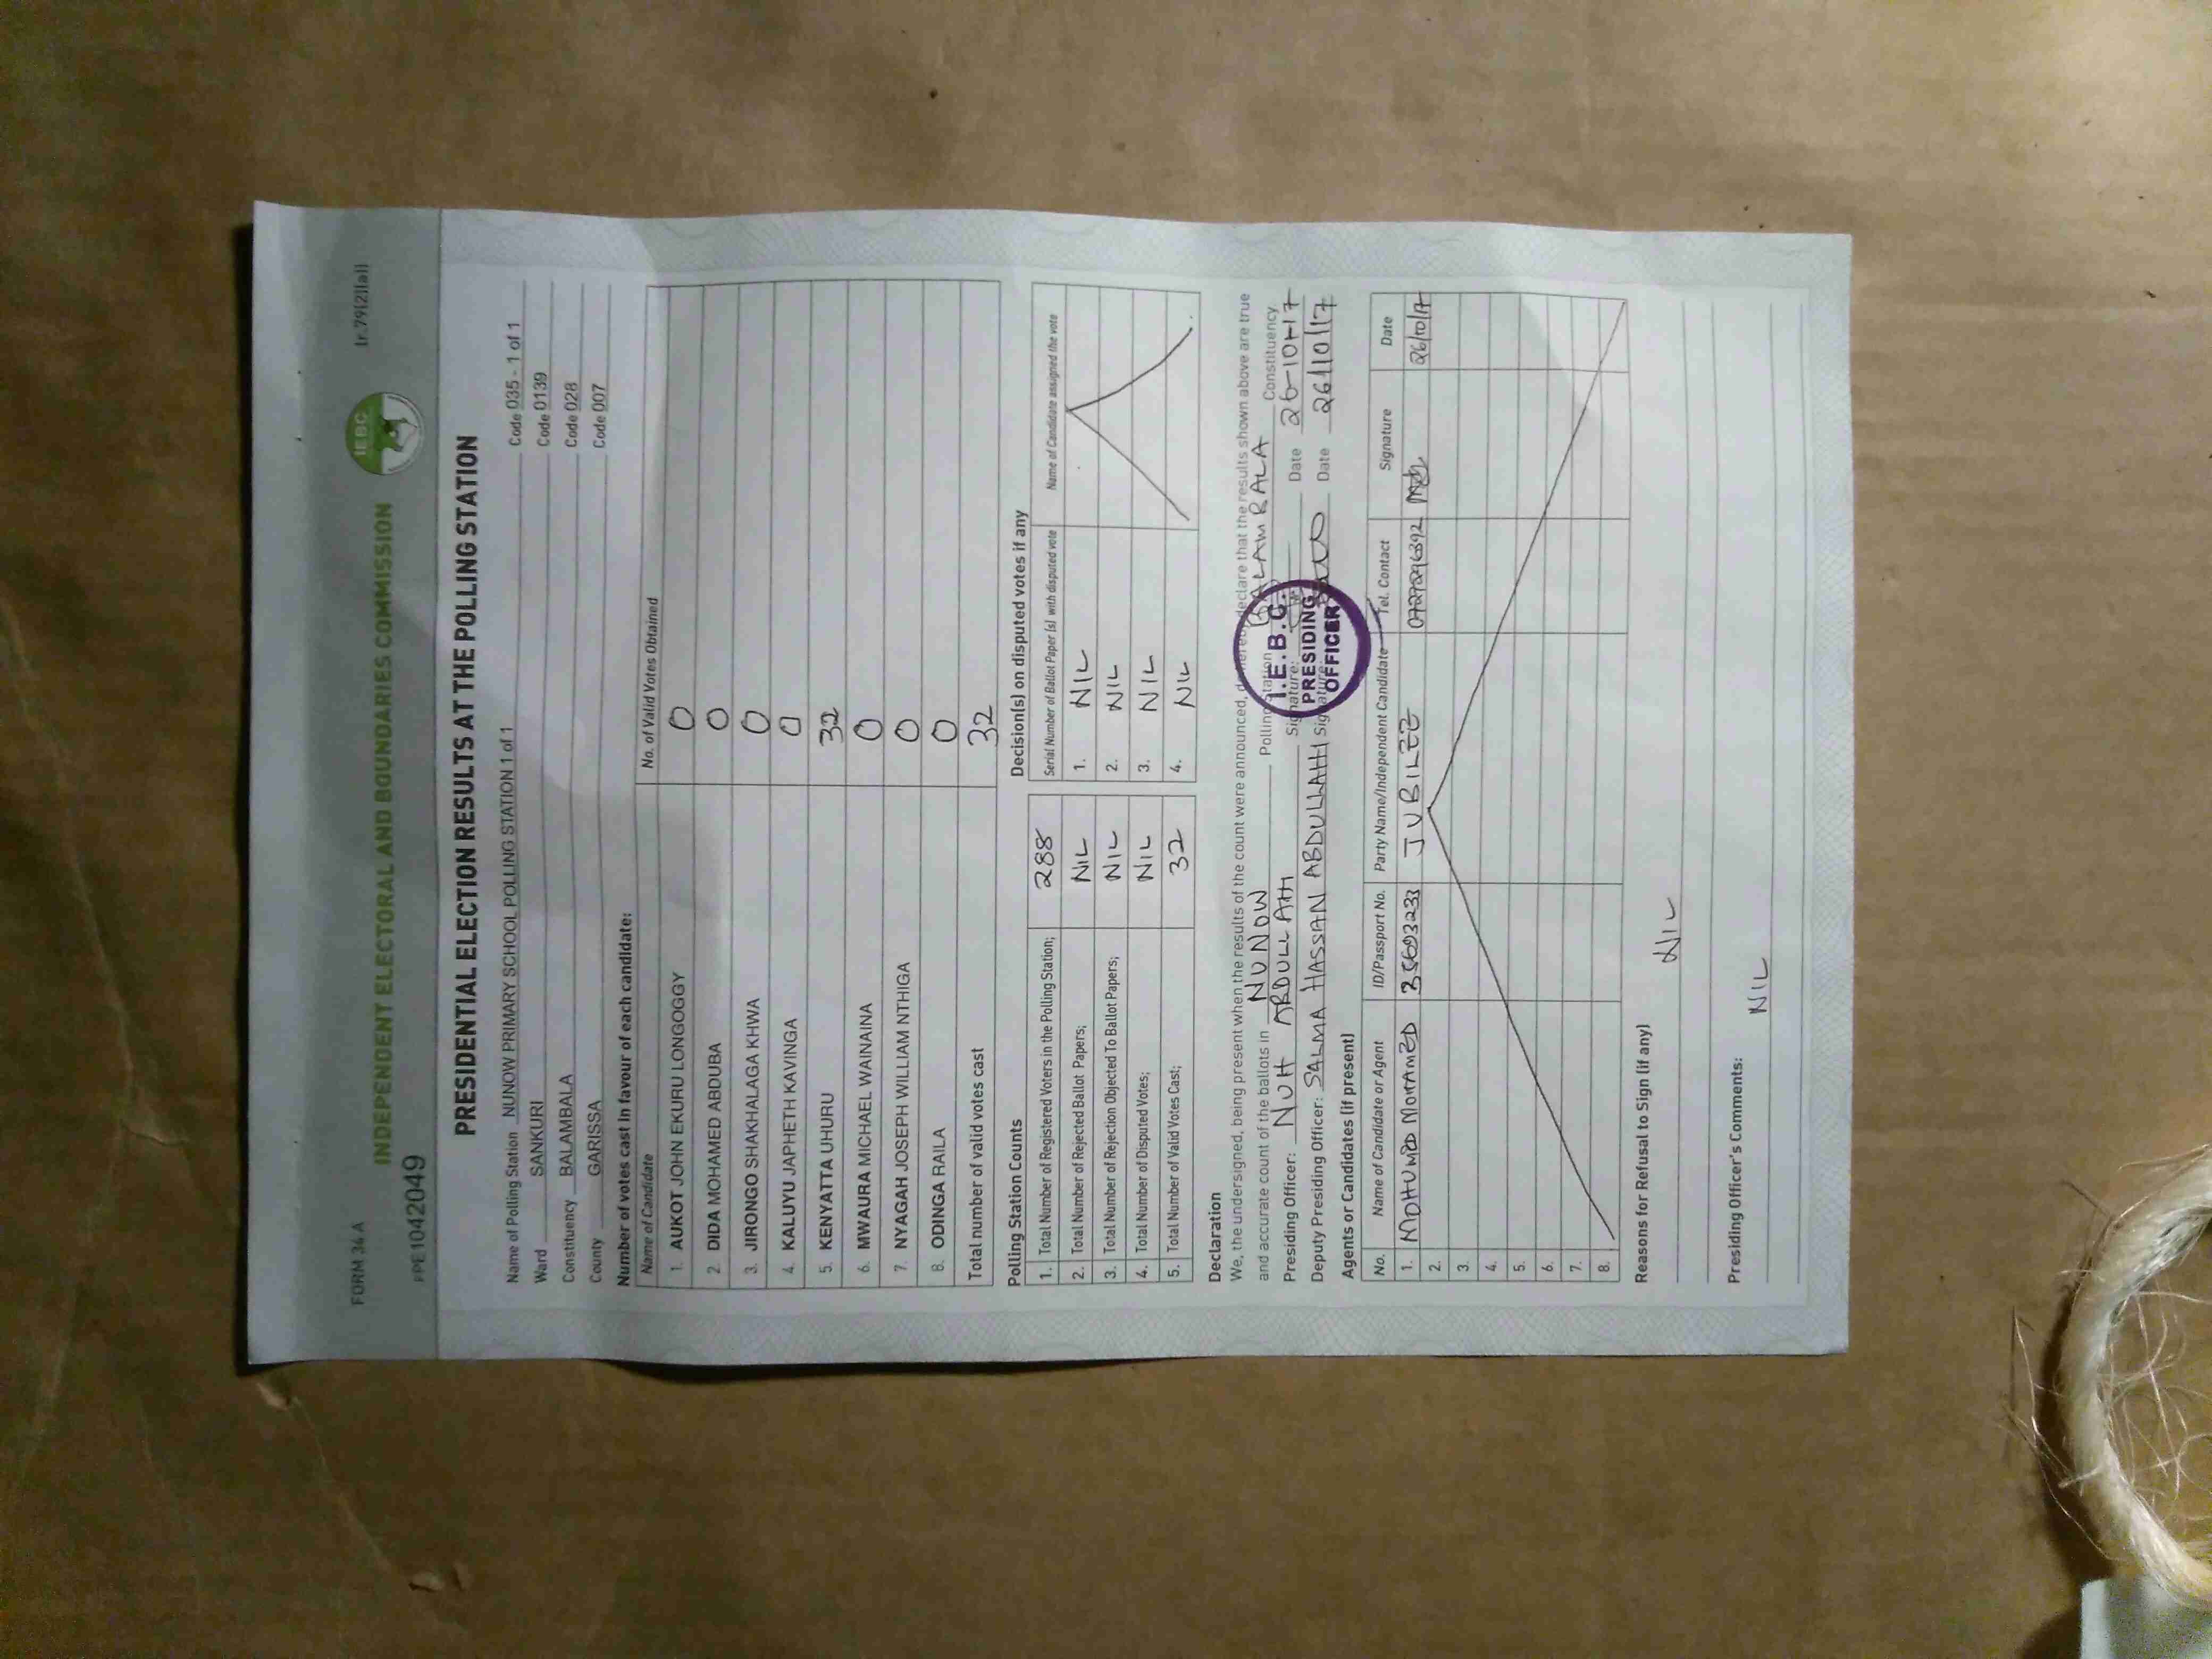 FORM 34 A
[r.79(2)(a)]
INDEPENDENT ELECTORAL AND BOUNDARIES COMMISSION
IEBC
PPE1042049
PRESIDENTIAL ELECTION RESULTS AT THE POLLING STATION
Name of Polling Station NUNOW PRIMARY SCHOOL POLLING STATION 1 of 1 Code 035 - 1 of 1
Ward SANKURI Code 0139
Constituency BALAMBALA Code 028
County GARISSA Code 007
Number of votes cast in favour of each candidate:
Name of Candidate No. of Valid Votes Obtained
1. AUKOT JOHN EKURU LONGOGGY 0
2. DIDA MOHAMED ABDUBA 0
3. JIRONGO SHAKHALAGA KHWA 0
4. KALUYU JAPHETH KAVINGA 0
5. KENYATTA UHURU 32
6. MWAURA MICHAEL WAINAINA 0
7. NYAGAH JOSEPH WILLIAM NTHIGA 0
8. ODINGA RAILA 0
Total number of valid votes cast 32
Polling Station Counts
1. Total Number of Registered Voters in the Polling Station; 288
2. Total Number of Rejected Ballot Papers; NIL
3. Total Number of Rejection Objected To Ballot Papers; NIL
4. Total Number of Disputed Votes; NIL
5. Total Number of Valid Votes Cast; 32
Decision(s) on disputed votes if any
Serial Number of Ballot Paper (s) with disputed vote Name of Candidate assigned the vote
1. NIL
2. NIL
3. NIL
4. NIL
Declaration
We, the undersigned, being present when the results of the count were announced, do hereby declare that the results shown above are true
and accurate count of the ballots in NUNOW Polling Station BALAMBALA Constituency
Presiding Officer: NUH ABDULLAHI Signature: Date 26-10-17
Deputy Presiding Officer: SALMA HASSAN ABDULLAHI Signature: Date 26/10/17
I.E.B.C.
PRESIDING
OFFICER
Agents or Candidates (if present)
No. Name of Candidate or Agent ID/Passport No. Party Name/Independent Candidate Tel. Contact Signature Date
1. MOHUMED MOHAMED 35693233 JUBILEE 0727296392 26/10/17
2.
3.
4.
5.
6.
7.
8.
Reasons for Refusal to Sign (if any)
NIL
Presiding Officer's Comments:
NIL